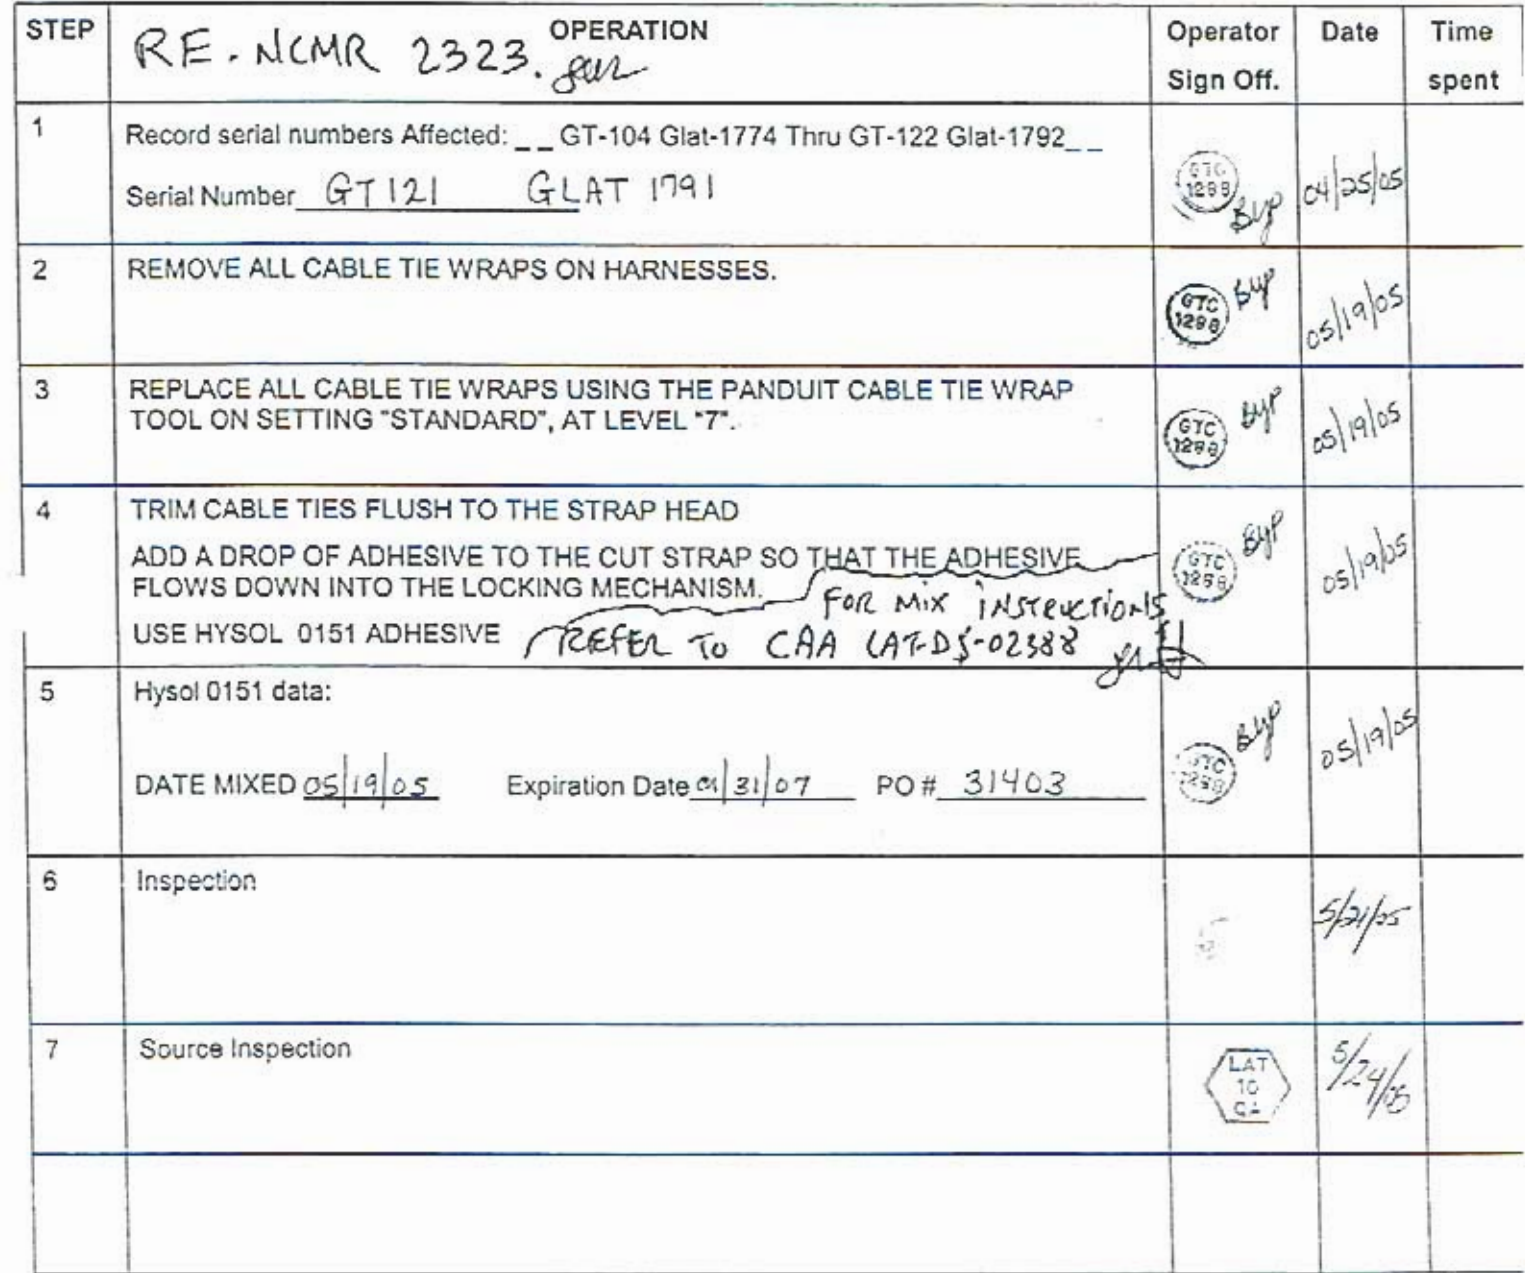 STEP OPERATION Operator Sign Off. Date Time spent
RE. NCMR 2323.
1 Record serial numbers Affected: _ _ GT-104 Glat-1774 Thru GT-122 Glat-1792_ _
Serial Number GT121 GLAT 1791
GTC 1288 BYP 04/25/05
2 REMOVE ALL CABLE TIE WRAPS ON HARNESSES.
GTC 1288 BYP 05/19/05
3 REPLACE ALL CABLE TIE WRAPS USING THE PANDUIT CABLE TIE WRAP
TOOL ON SETTING "STANDARD", AT LEVEL "7".
GTC 1288 BYP 05/19/05
4 TRIM CABLE TIES FLUSH TO THE STRAP HEAD
ADD A DROP OF ADHESIVE TO THE CUT STRAP SO THAT THE ADHESIVE
FLOWS DOWN INTO THE LOCKING MECHANISM.
FOR MIX INSTRUCTIONS
USE HYSOL 0151 ADHESIVE REFER TO CAA LAT-DS-02388
GTC 1288 BYP 05/19/05
5 Hysol 0151 data:
DATE MIXED 05/19/05 Expiration Date 01/31/07 PO # 31403
GTC 1288 BYP 05/19/05
6 Inspection 5/21/05
7 Source Inspection LAT 10 QA 5/24/05